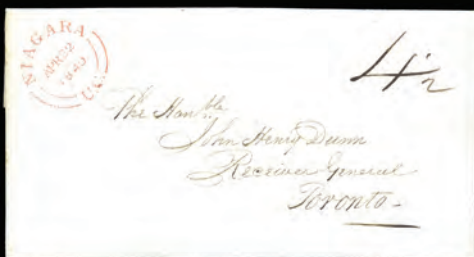 NIAGARA
APR 22
U.C.
4½
The Honble
John Henry Dunn
Receiver General
Toronto-